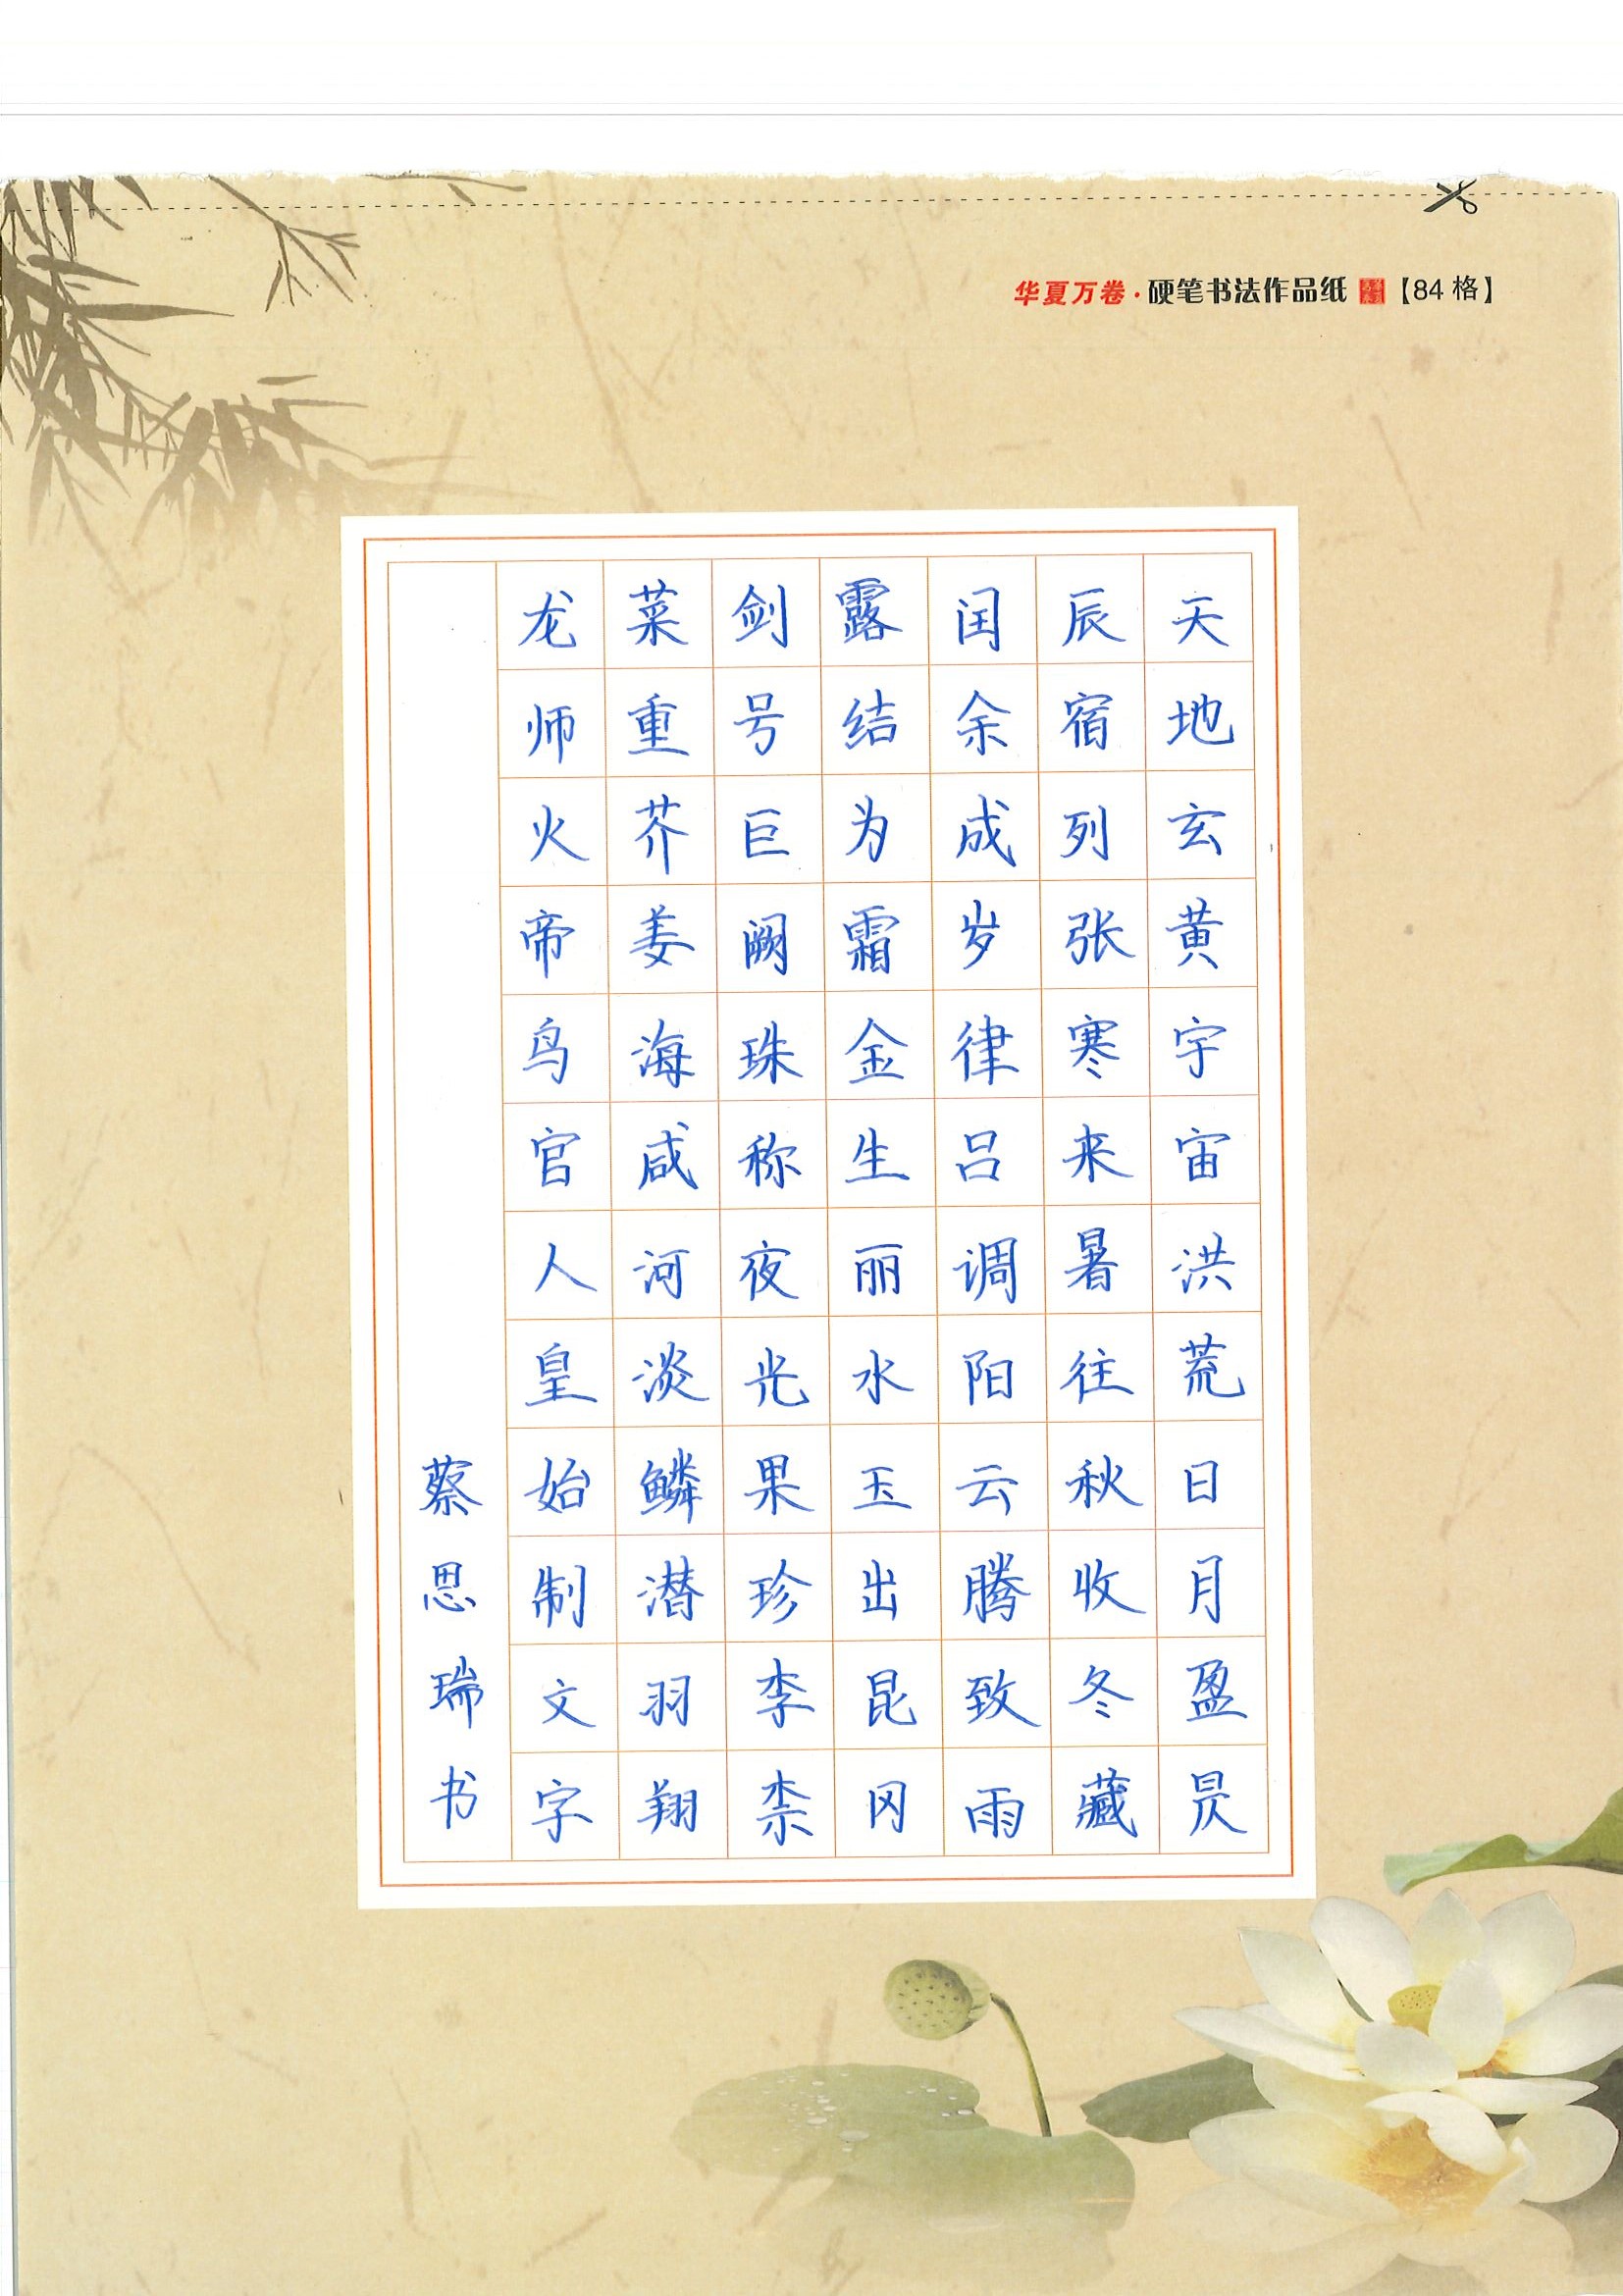 华夏万卷·硬笔书法作品纸【84格】
天地玄黄宇宙洪荒日月盈昃
辰宿列张寒来暑往秋收冬藏
闰余成岁律吕调阳云腾致雨
露结为霜金生丽水玉出昆冈
剑号巨阙珠称夜光果珍李柰
菜重芥姜海咸河淡鳞潜羽翔
龙师火帝鸟官人皇始制文字
蔡思瑞书